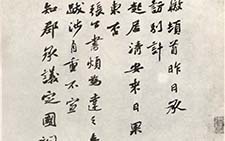 轍頓首昨日承
訪別計
起居清安來日果
東否
公書煩為達之
跋涉自重不宣
知郡承議定國